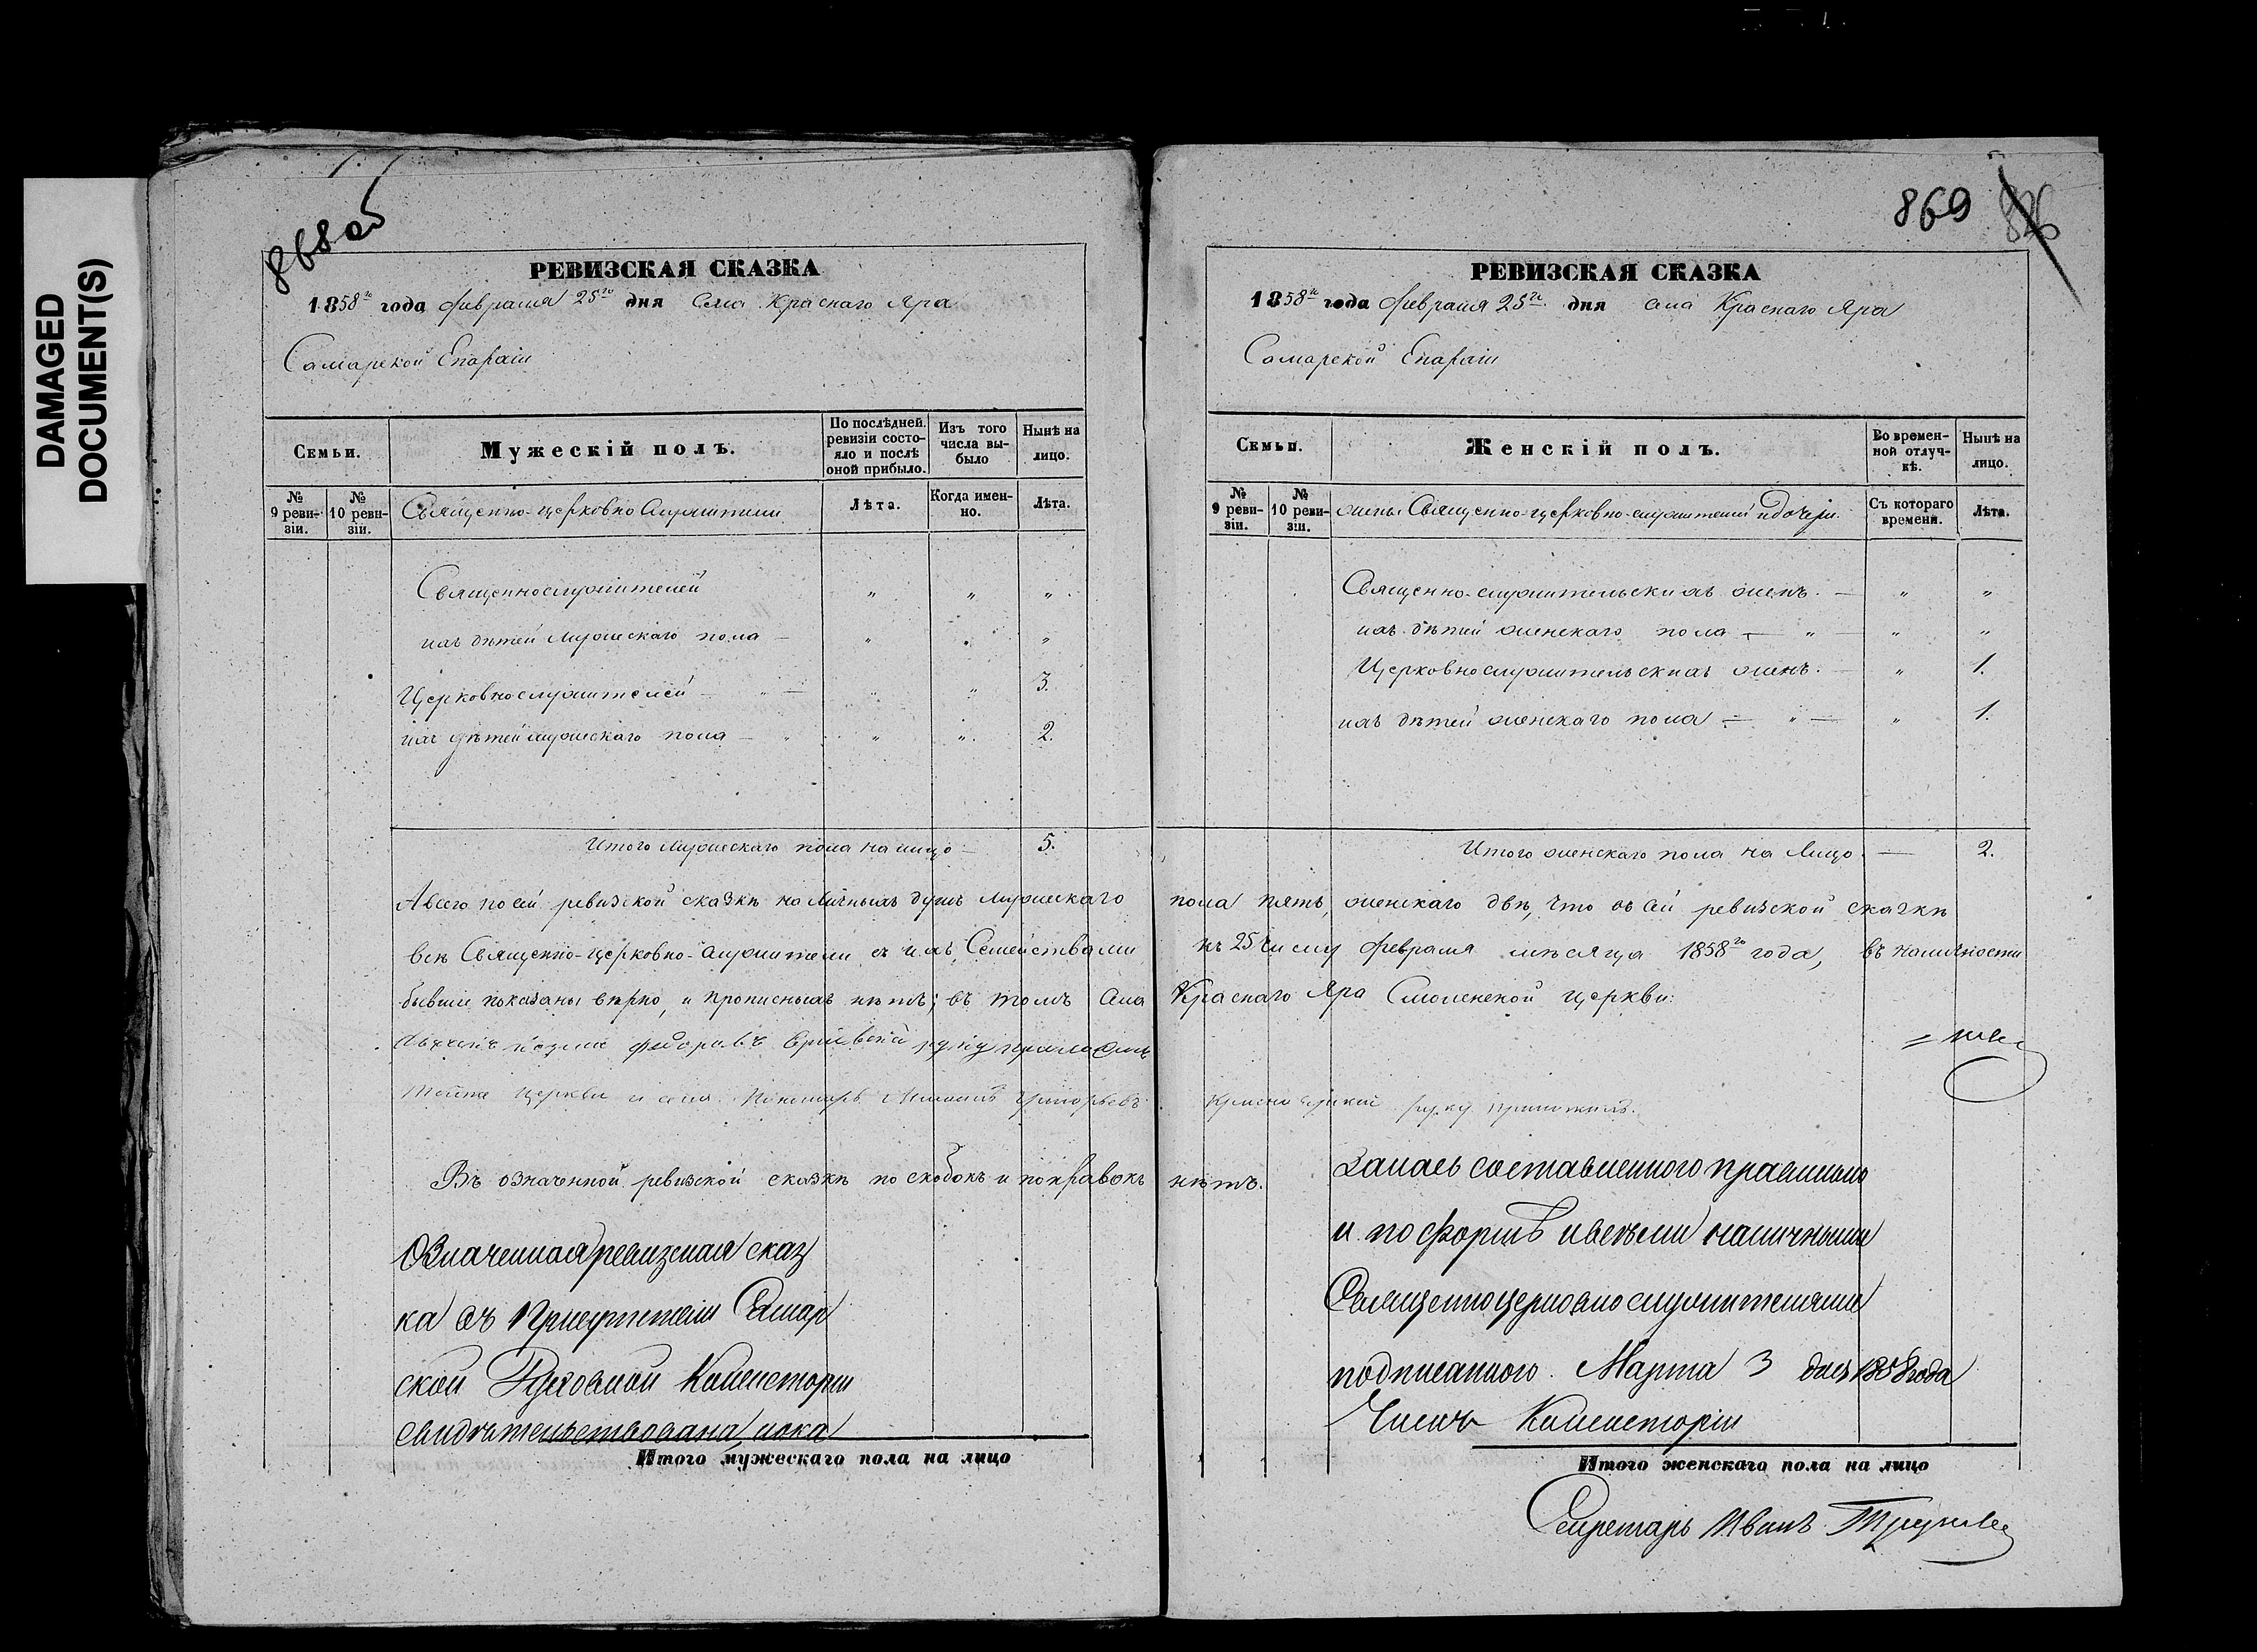 DAMAGED
DOCUMENT(S)
868 об
РЕВИЗСКАЯ СКАЗКА
1858го года февраля 25го дня села Краснаго Яра
Самарской Епархіи
Семьи.
Мужескій полъ.
По послѣдней ревизіи состояло и послѣ оной прибыло.
Изъ того числа выбыло
Нынѣ на лицо.
№ 9 ревизіи.
№ 10 ревизіи.
Священно-церковно служители
Лѣта.
Когда именно.
Лѣта.
Священнослужителей " " "
ихъ дѣтей мужескаго пола — " "
Церковнослужителей — " — " " 3.
ихъ дѣтей мужескаго пола — " " " 2.
Итого мужескаго пола на лицо — 5.
А всего по сей ревизской сказкѣ наличныхъ душъ мужескаго
всѣ Священно-церковно-служители съ ихъ Семействами
бывшіе показаны вѣрно, и прописныхъ нѣтъ; въ томъ села
руку приложилъ
тойже церкви и села Пономарь Григорьевъ
Въ означенной ревизской сказкѣ по скобокъ и поправокъ
Означенная ревизская сказ
ка въ Присутствіи Самар
ской Духовной Консисторіи
свидѣтельствована, и ока
Итого мужескаго пола на лицо
869
826
РЕВИЗСКАЯ СКАЗКА
1858го года февраля 25го дня села Краснаго Яра
Самарской Епархіи
Семьи.
Женскій полъ.
Во временной отлучкѣ.
Нынѣ на лицо.
№ 9 ревизіи.
№ 10 ревизіи.
жены Священно-церковно-служителей и дочери.
Съ котораго времени.
Лѣта.
Священно-служительскихъ женъ. — " "
ихъ дѣтей женскаго пола — " — " "
Церковнослужительскихъ женъ. — " 1.
ихъ дѣтей женскаго пола — " — " 1.
Итого женскаго пола на лицо. — 2.
пола пять, женскаго двѣ, что въ сей ревизской сказкѣ
къ 25 числу февраля мѣсяца 1858го года, въ наличности
Краснаго Яра Смоленской церкви:
руку приложилъ.
нѣтъ.
залась составленною правильно
и по формѣ и всѣми наличными
Священноцерковнослужителями
подписанною. Марта 3 дня 1858 года
Членъ Консисторіи
Итого женскаго пола на лицо
Секретарь Иванъ